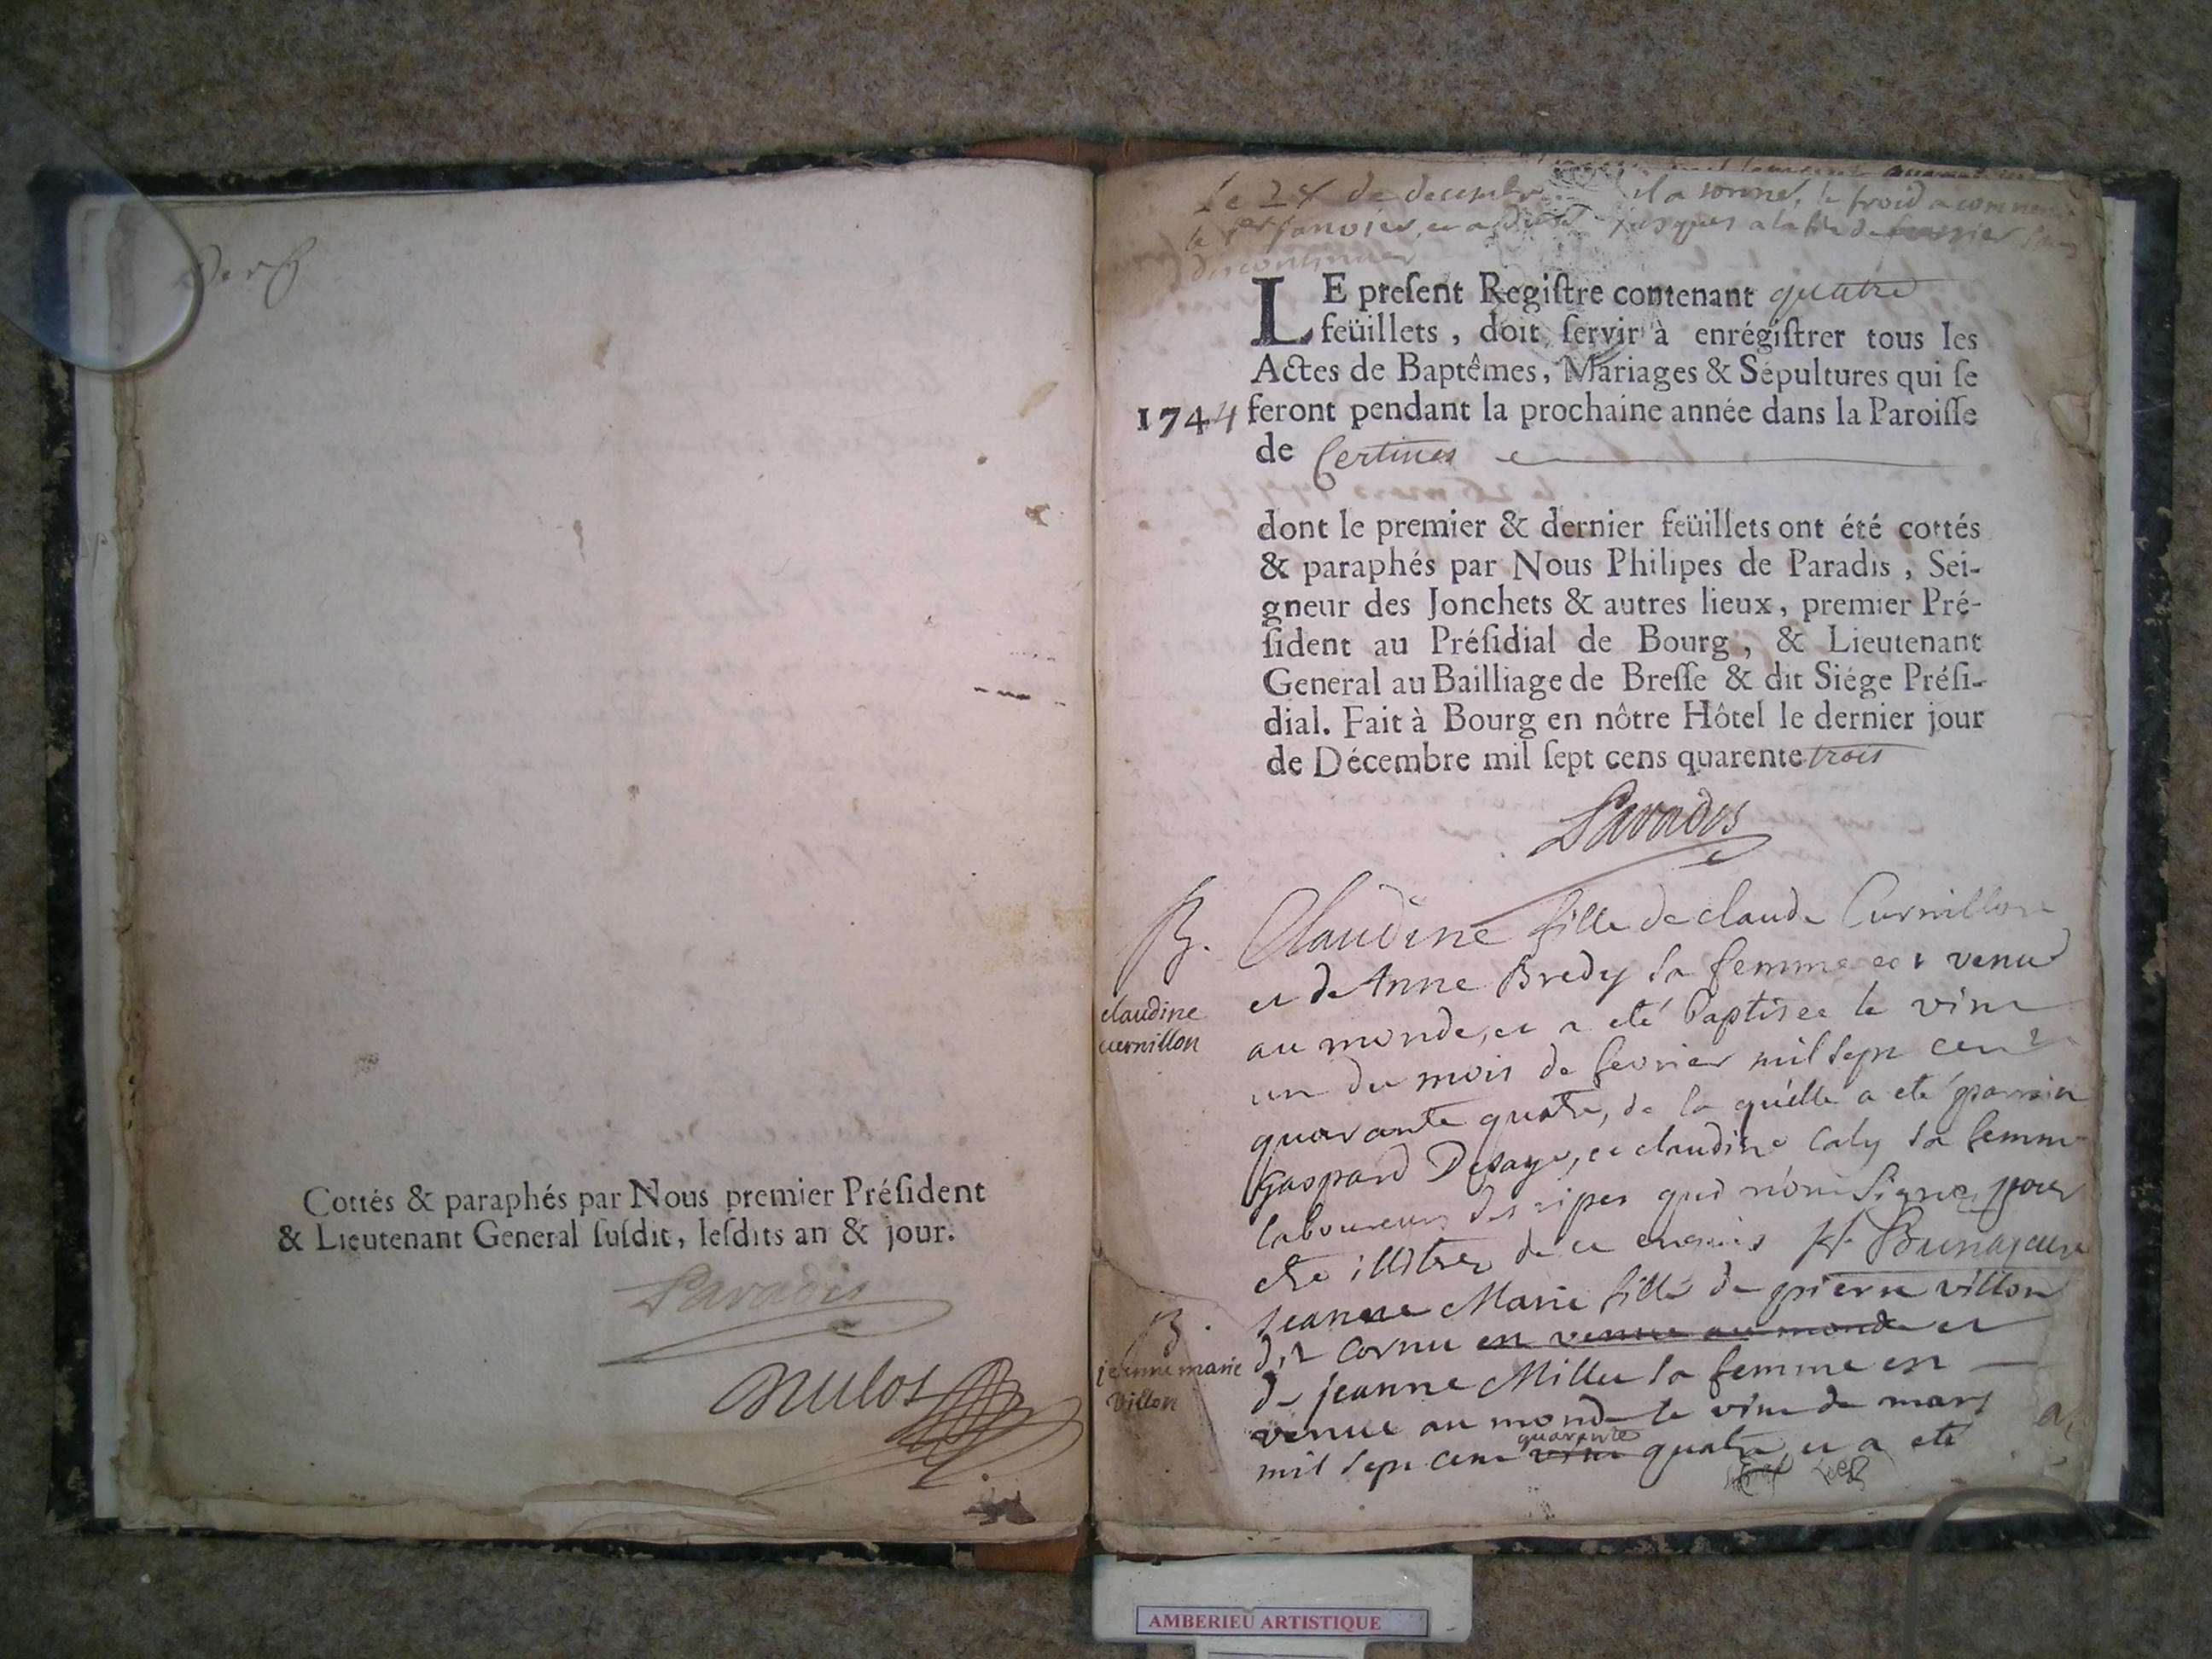 Cottés & paraphés par Nous premier Préſident
& Lieutenant General ſuſdit, leſdits an & jour.
Paradis
nulos
Le 24 de decembre il a tonné, le froid a commencé
le 1er janvier, et a duré jusques a la fin de
discontinuer
LE preſent Regiſtre contenant quatre
feüillets, doit ſervir à enrégiſtrer tous les
Actes de Baptêmes, Mariages & Sépultures qui ſe
1744 feront pendant la prochaine année dans la Paroiſſe
de Certines
dont le premier & dernier feüillets ont été cottés
& paraphés par Nous Philipes de Paradis, Sei-
gneur des Jonchets & autres lieux, premier Pré-
ſident au Préſidial de Bourg, & Lieutenant
General au Bailliage de Breſſe & dit Siége Préſi-
dial. Fait à Bourg en nôtre Hôtel le dernier jour
de Décembre mil ſept cens quarente trois
Paradis
B.
claudine
curnillon
Claudine fille de claude Curnillon
et de Anne Bredy sa femme est venue
au monde, et a eté baptisee le vint
un du mois de fevrier mil sept cent
quarante quatre, de la quelle a eté parrain
Gaspard Desaye, et claudine Caly sa femme
laboureurs des ripes qui n'ont signé pour
etre illitrez de ce enquis
B.
jeanne marie
villon
Jeanne Marie fille de pierre villon
dit Cornu en venue au monde et
de jeanne Millet sa femme est
venue au monde le vint de mars
mil sept cent vint quarante quatre, et a eté
AMBERIEU ARTISTIQUE